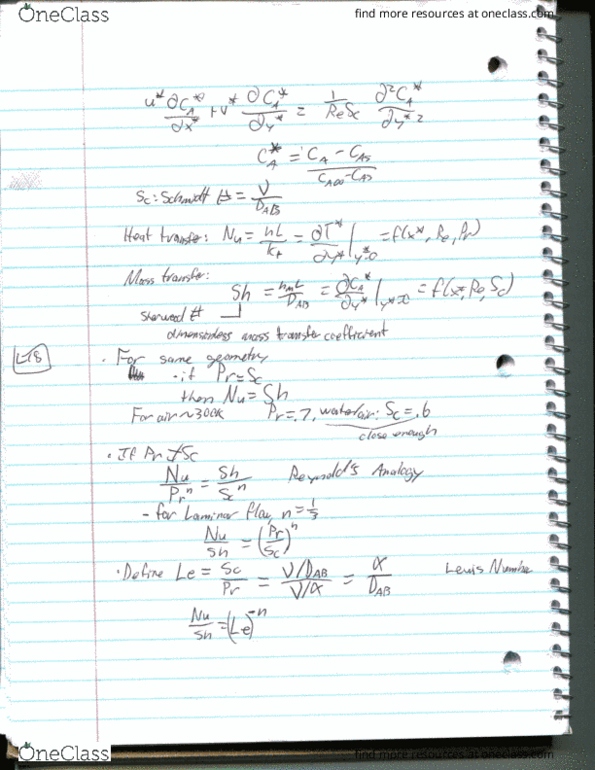 OneClass
find more resources at oneclass.com
u* ∂C_A*/∂x* + v* ∂C_A*/∂y* = 1/(Re Sc) ∂²C_A*/∂y*²
C_A* = (C_A - C_As)/(C_A∞ - C_As)
Sc: Schmidt # = ν/D_AB
Heat transfer: Nu = hL/k_f = ∂T*/∂y* |y*=0 = f(x*, Re, Pr)
Mass transfer:
Sh = h_m L/D_AB = ∂C_A*/∂y* |y*=0 = f(x*, Re, Sc)
Sherwood #
dimensionless mass transfer coefficient
L18
· For same geometry
· if Pr = Sc
then Nu = Sh
For air ~300K Pr = .7, water/air: Sc = .6
close enough
· If Pr ≠ Sc
Nu/Pr^n = Sh/Sc^n Reynold's Analogy
- for Laminar flow, n = 1/3
Nu/Sh = (Pr/Sc)^n
· Define Le = Sc/Pr = (ν/D_AB)/(ν/α) = α/D_AB Lewis Number
Nu/Sh = (Le)^-n
OneClass
find more resources at oneclass.com